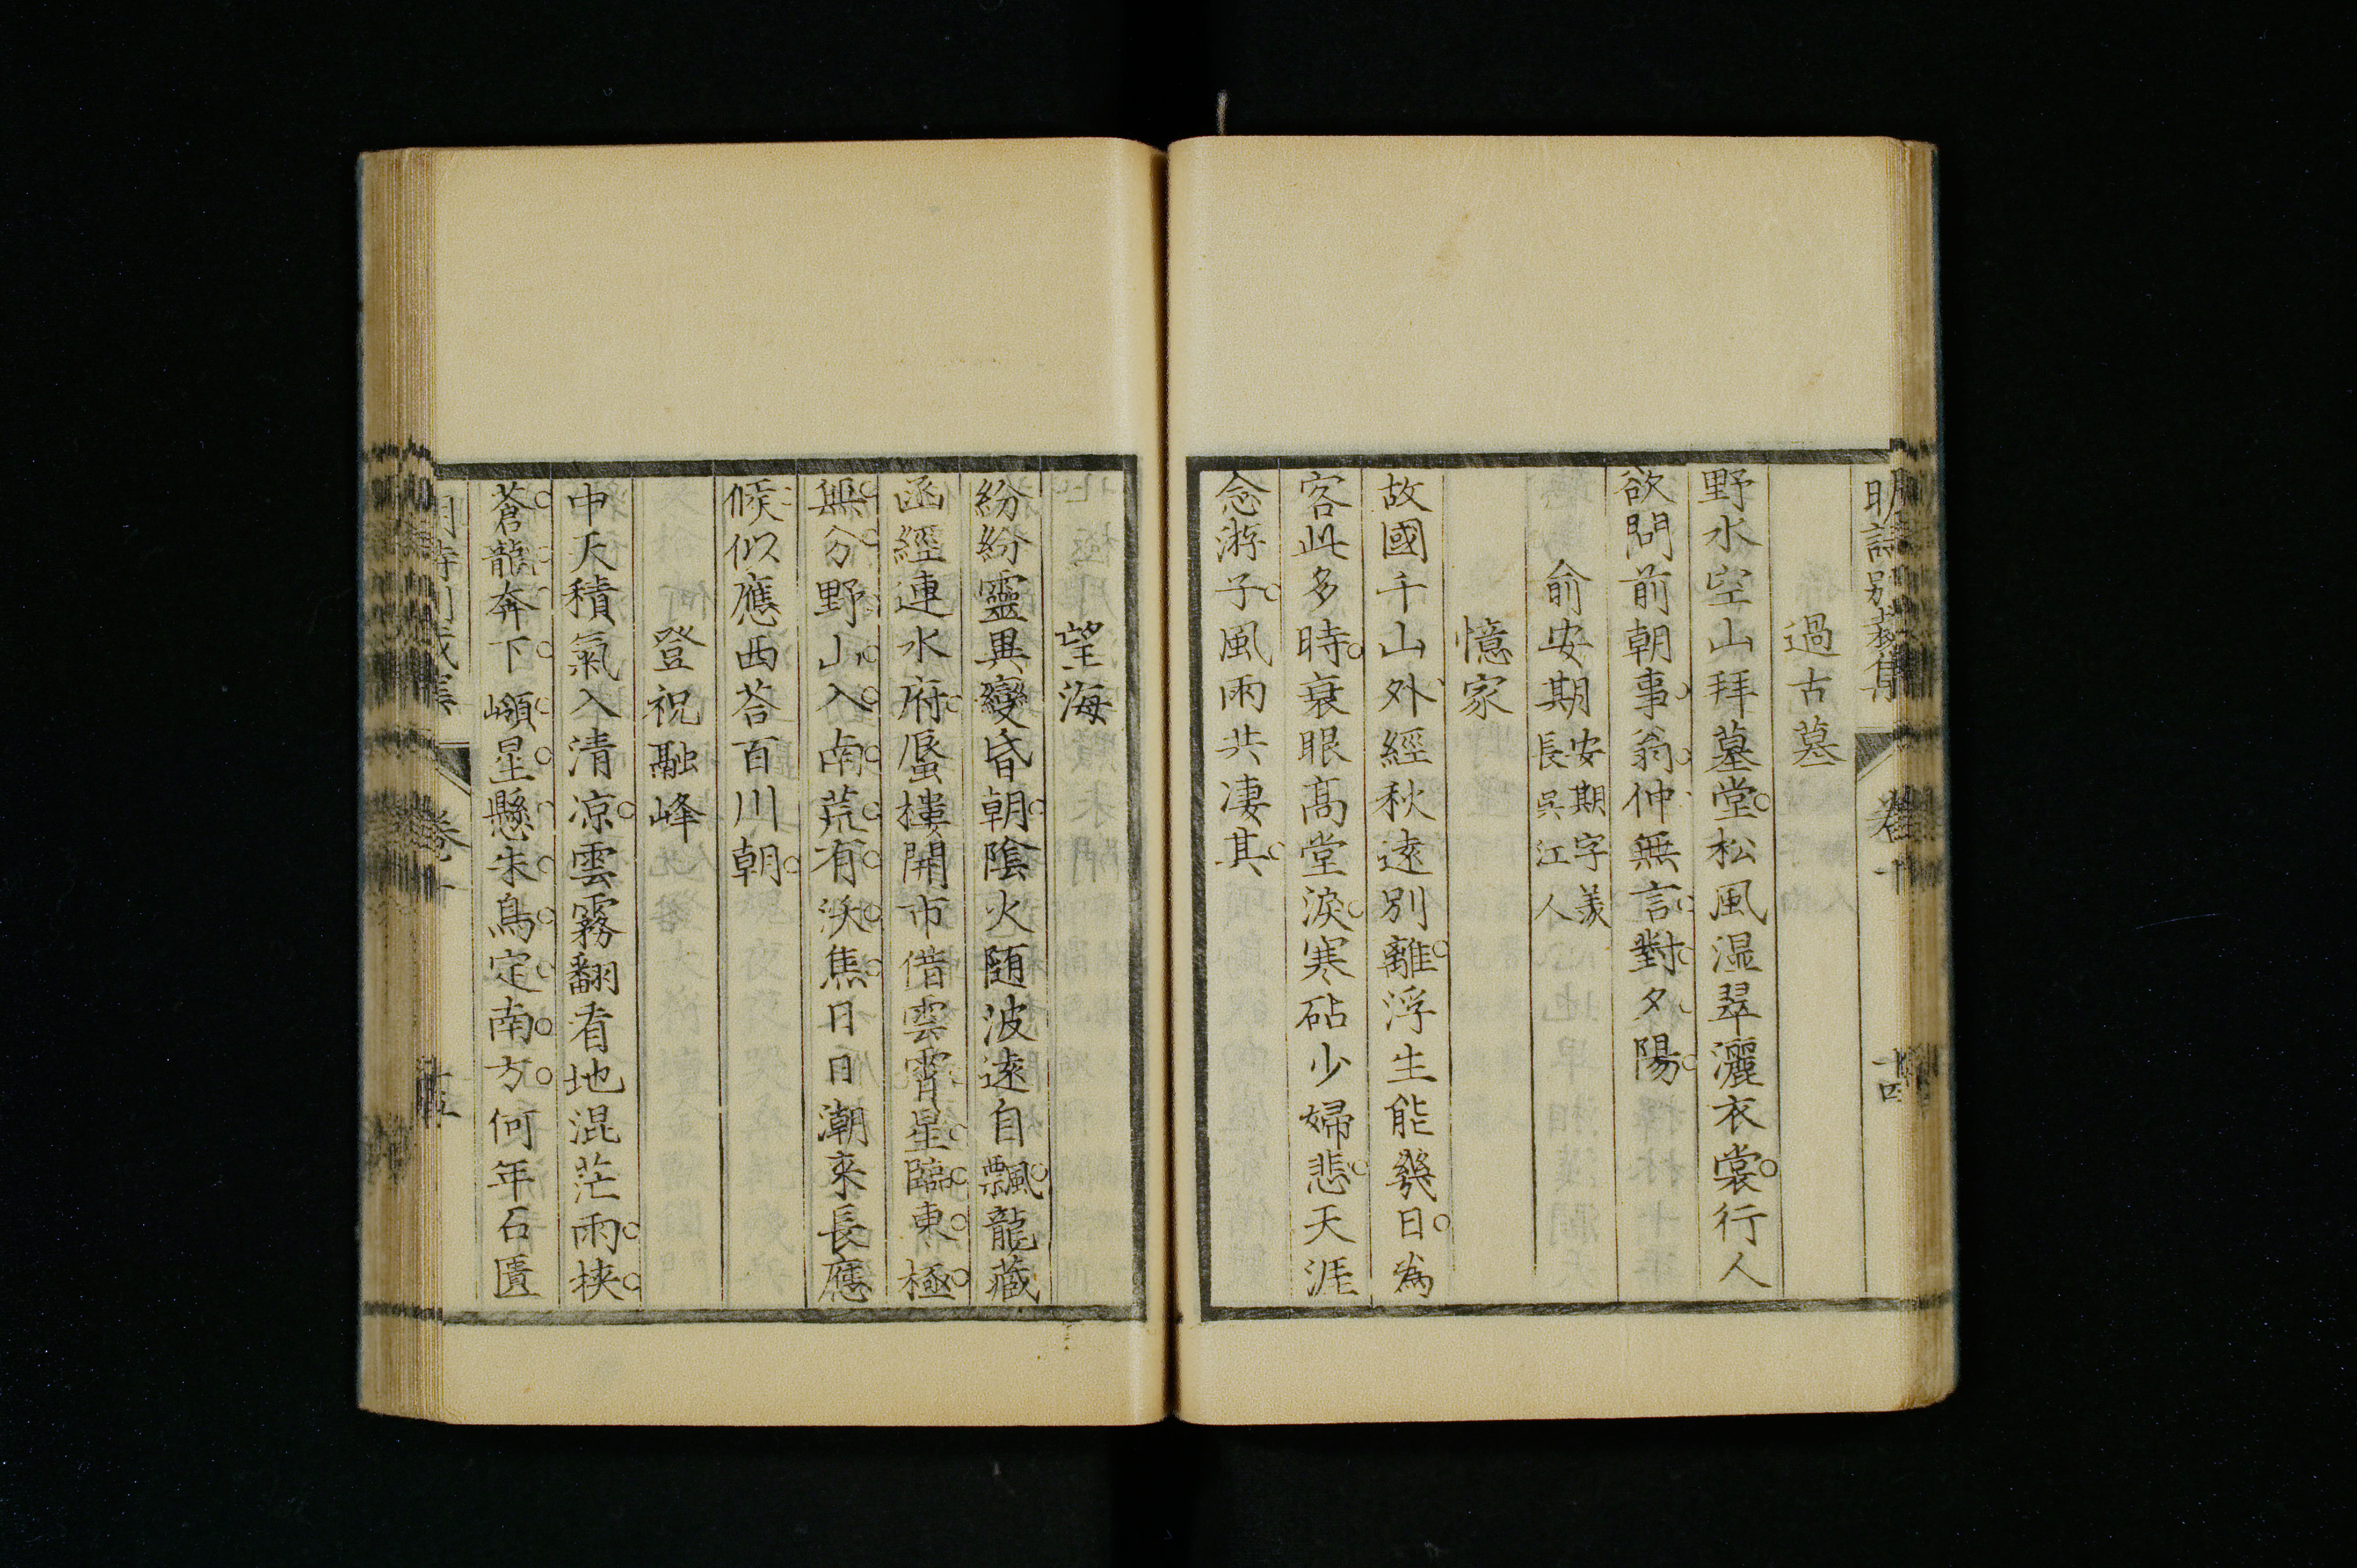 明詩別裁集 卷十 十四
過古墓
野水空山拜墓堂松風濕翠灑衣裳行人
欲問前朝事翁仲無言對夕陽
俞安期安期字羨長吳江人
憶家
故國千山外經秋遠別離浮生能幾日爲
客此多時衰眼髙堂淚寒砧少婦悲天涯
念游子風雨共凄其
望海
紛紛靈異變昏朝陰火随波遠自飄龍藏
函經連水府蜃樓開市借雲霄星臨東極
無分野山入南荒有沃焦日日潮來長應
候似應西荅百川朝
登祝融峰
中天積氣入清凉雲霧翻看地混茫雨挾
蒼龍奔下嶺星懸朱鳥定南方何年石匱
卷十